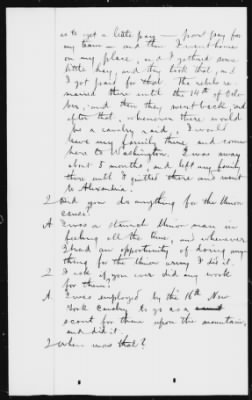 as to get a little pay — poor pay for
my team — and then I went home
on my place, and I gathered some
little hay, and they took that, and
I got paid for that. The rebels re-
mained there until the 14th of Octo-
ber, and then they went back, and
after that, whenever there would
be a cavalry raid, I would
leave my family there and come
here to Washington. I was away
about 5 months, and left my family
there until I quitted there and went
to Alexandria.
Q Did you do anything for the Union
cause?
A I was a staunch Union man in
feeling all the time, and whenever
I had an opportunity of doing any-
thing for the Union army I did it.
Q I ask if you ever did any work
for them?
A. I was employed by the 16th New
York Cavalry to go as a
scout for them upon the mountain,
and did it.
Q When was that?